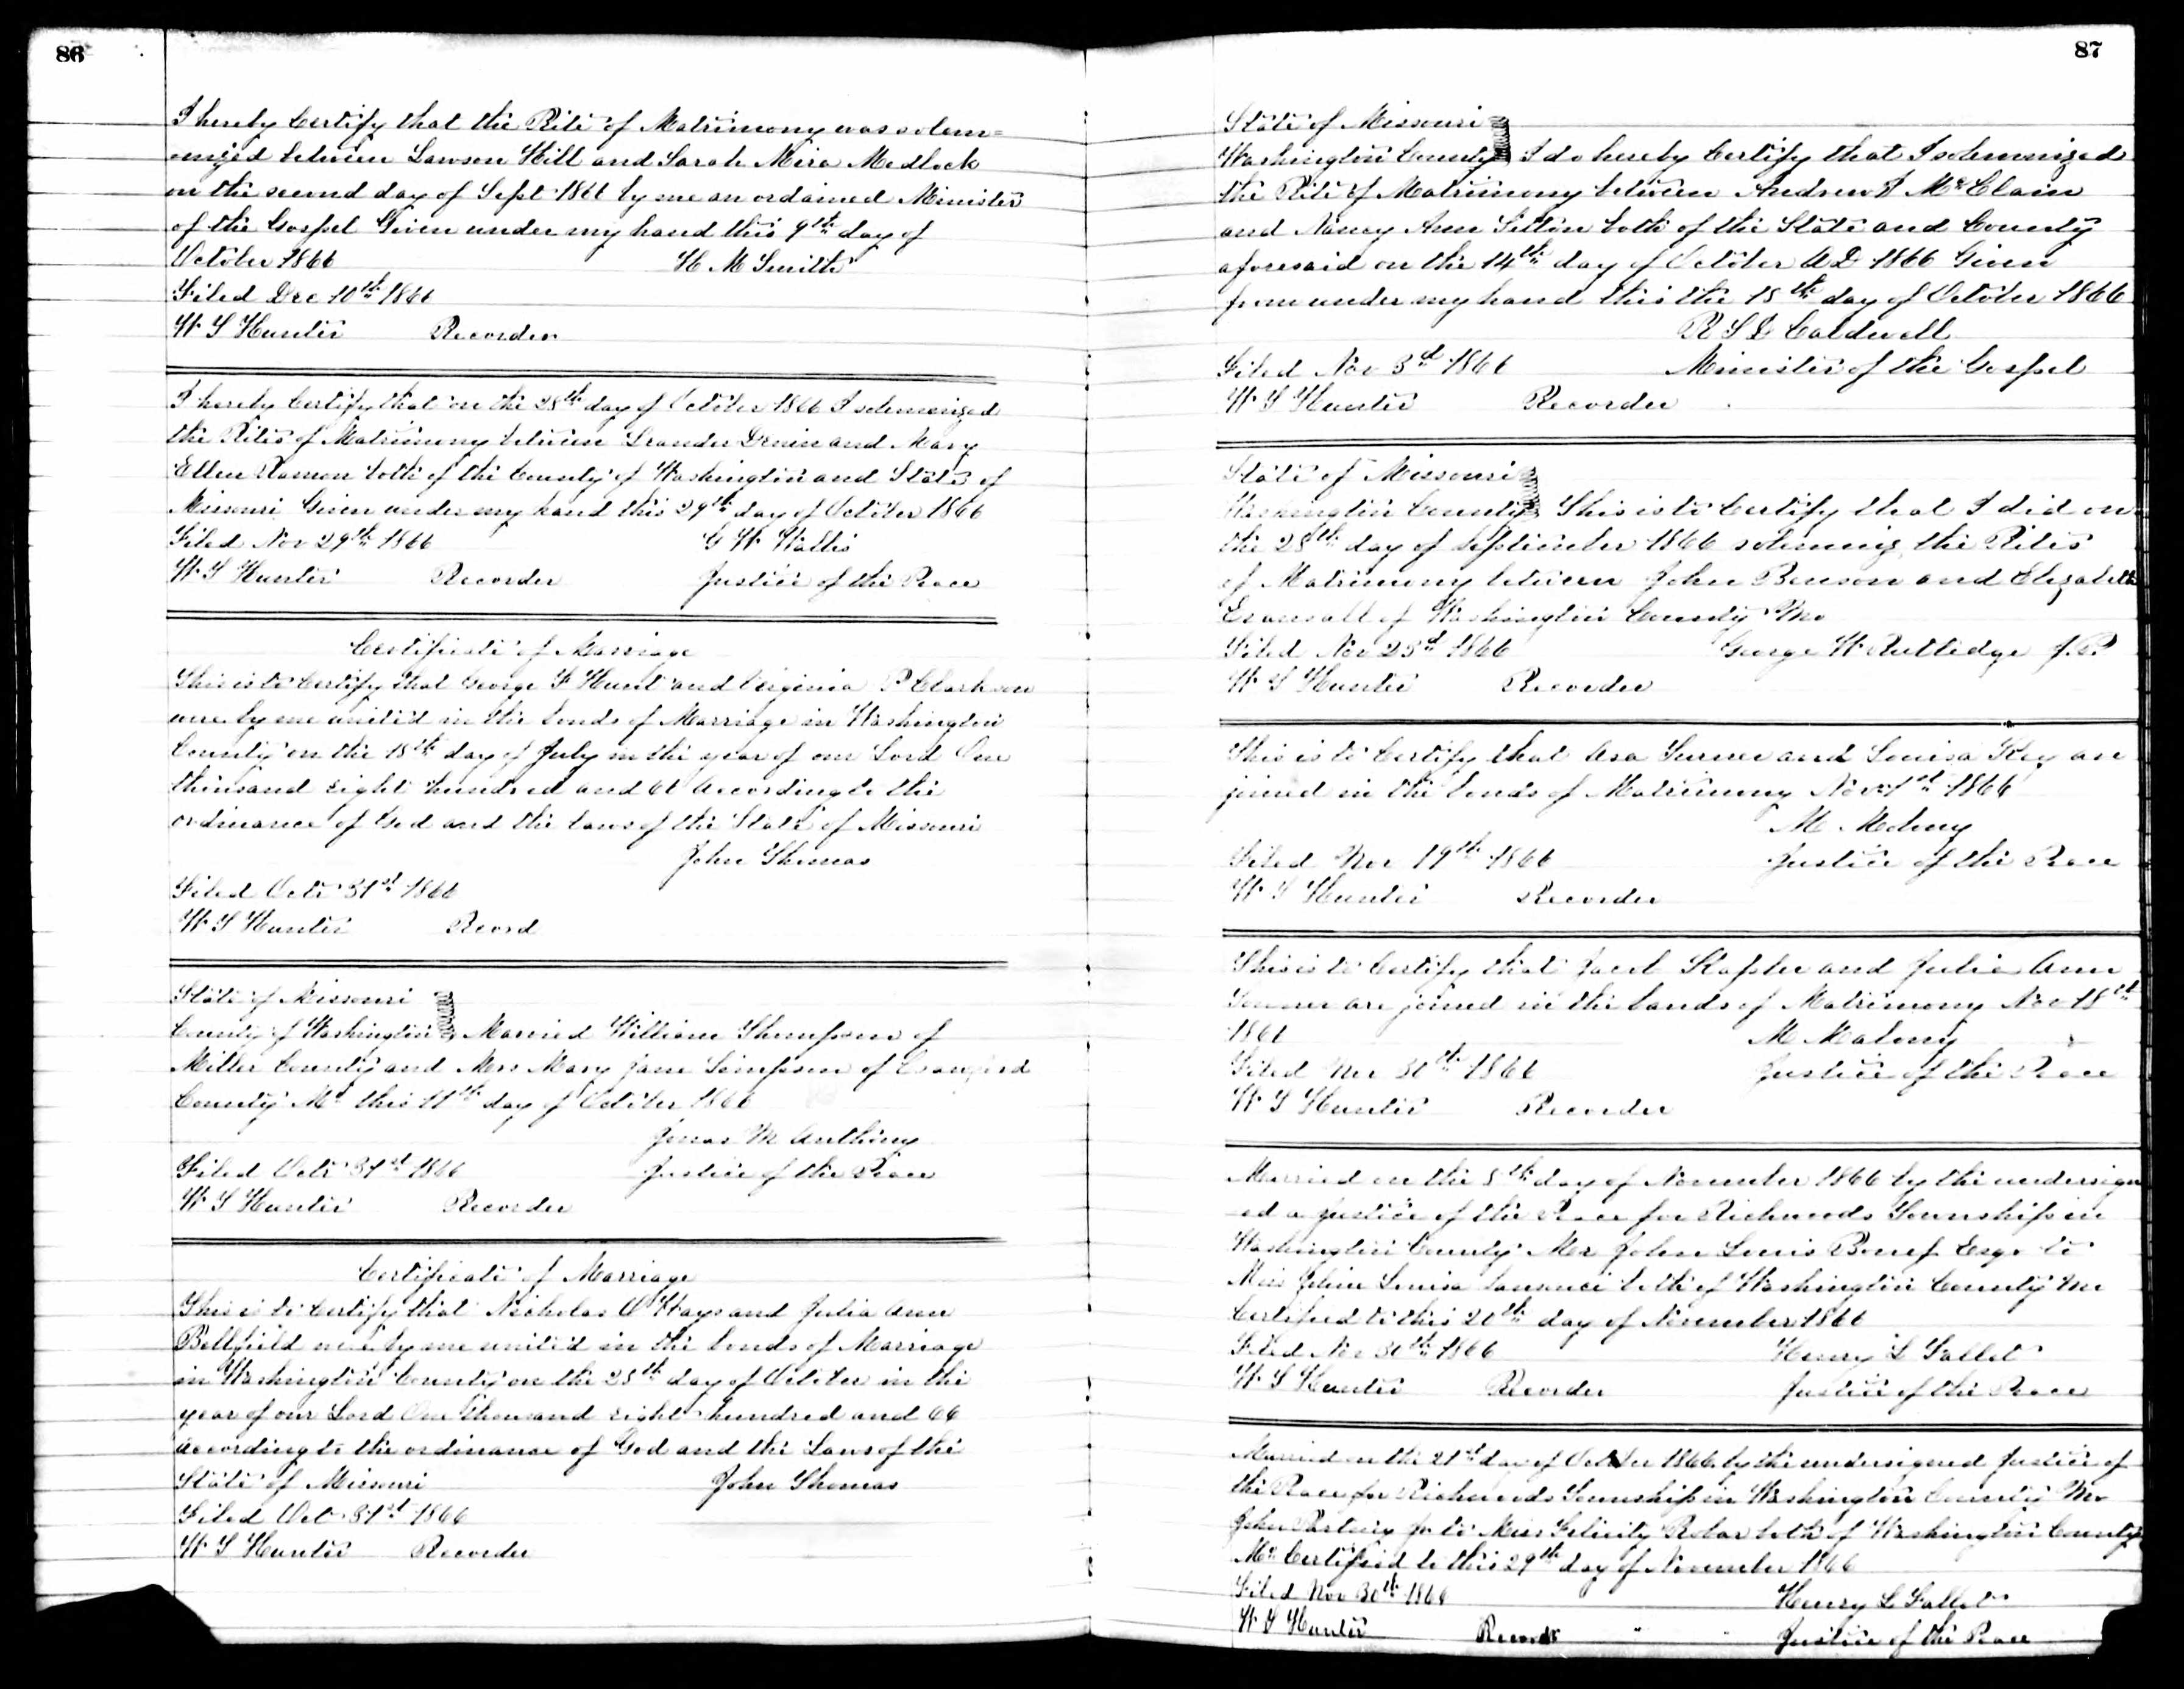 86
I hereby Certify that the Rite of Matrimony was solem=
=nized between Lawson Hill and Sarah Mira Medlock
on the second day of Sept 1866 by me an ordained Minister
of the Gospel Given under my hand this 9th day of
October 1866 H M Smith
Filed Dec 10th 1866
W S Hunter Recorder
I hereby Certify that on the 28th day of October 1866 I solemnized
the Rites of Matrimony between Leander and Mary
Ellen both of the County of Washington and State of
Missouri Given under my hand this 29th day of October 1866
Filed Nov 29th 1866 G W Wallis
W S Hunter Recorder Justice of the Peace
Certificate of Marriage
This is to Certify that George F Hunt and Virginia P Clarkson
were by me united in the bonds of Marriage in Washington
County on the 18th day of July in the year of our Lord One
thousand eight hundred and 66 According to the
ordinance of God and the laws of the State of Missouri
John Thomas
Filed Oct 31st 1866
W S Hunter Record
State of Missouri
County of Washington Married William Thompson of
Miller County and Mrs Mary Jane Simpson of Crawford
County Mo this 11th day of October 1866
James M Anthony
Filed Oct 31st 1866 Justice of the Peace
W S Hunter Recorder
Certificate of Marriage
This is to Certify that Nicholas O Hays and Julia Ann
Bellfield were by me united in the bonds of Marriage
in Washington County on the 25th day of October in the
year of our Lord One thousand eight hundred and 66
according to the ordinance of God and the Laws of the
State of Missouri John Thomas
Filed Oct 31st 1866
W S Hunter Recorder
87
State of Missouri
Washington County I do hereby Certify that I solemnized
the Rite of Matrimony between Andrew J McClain
and Nancy Ann both of the State and County
aforesaid on the 14th day of October A D 1866 Given
from under my hand this the 15th day of October 1866
R S D Caldwell
Filed Nov 3d 1866 Minister of the Gospel
W S Hunter Recorder
State of Missouri
Washington County This is to Certify that I did on
the 28th day of September 1866 solemnize the Rites
of Matrimony between John Benson and Elizabeth
Evans all of Washington County Mo
Filed Nov 23d 1866 George W Rutledge J.P
W S Hunter Recorder
This is to Certify that Asa Turner and Louisa Key are
joined in the bonds of Matrimony Nov 1st 1866
M Molony
Filed Nov 19th 1866 Justice of the Peace
W S Hunter Recorder
This is to Certify that Jacob and Julia Ann
are joined in the bands of Matrimony Nov 18th
1866 M Malony
Filed Nov 30th 1866 Justice of the Peace
W S Hunter Recorder
Married on the 5th day of November 1866 by the undersign
-ed a Justice of the Peace for Richwoods Township in
Washington County Mr John Louis Esqr to
Miss Louisa both of Washington County Mo
Certified to this 20th day of November 1866
Filed Nov 30th 1866 Henry L
W S Hunter Recorder Justice of the Peace
Married on the 21st day of October 1866 by the undersigned Justice of
the Peace for Richwoods Township in Washington County Mo
John Jr to Miss Felicity both of Washington County
Mo Certified to this 29th day of November 1866
Filed Nov 30th 1866 Henry L
W S Hunter Recorder Justice of the Peace